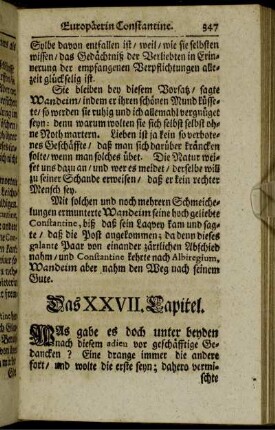 Europäerin Constantine. 347
Sylbe davon entfallen ist / weil / wie sie selbsten
wissen / das Gedächtniß der Verliebten in Erin-
nerung der empfangenen Verpflichtungen alle-
zeit glückselig ist.
Sie bleiben bey diesem Vorsatz / sagte
Wandeim / indem er ihren schönen Mund küsse-
te / so werden sie ruhig und ich allemahl vergnüget
seyn: denn warum wolten sie sich selbst selbst oh-
ne Noth martern. Lieben ist ja kein so verbote-
nes Geschäffte / daß man sich darüber kräncken
solte / wenn man solches übet. Die Natur wei-
set uns dazu an / und wer es meidet / derselbe will
zu seiner Schande erweisen / daß er kein rechter
Mensch sey.
Mit solchen und noch mehrern Schmeiche-
lungen ermunterte Wandeim seine hoch geliebte
Constantine, biß daß sein Laqvey kam und sag-
te / daß die Post angekommen; da denn dieses
galante Paar von einander zärtlichen Abschied
nahm / und Constantine kehrte nach Albiregium,
Wandeim aber nahm den Weg nach seinem
Gute.
Das XXVII. Capitel.
WAs gabe es doch unter beyden
nach diesem adieu vor geschäfftige Ge-
dancken? Eine drange immer die andere
fort / und wolte die erste seyn; dahero vermi-
schte